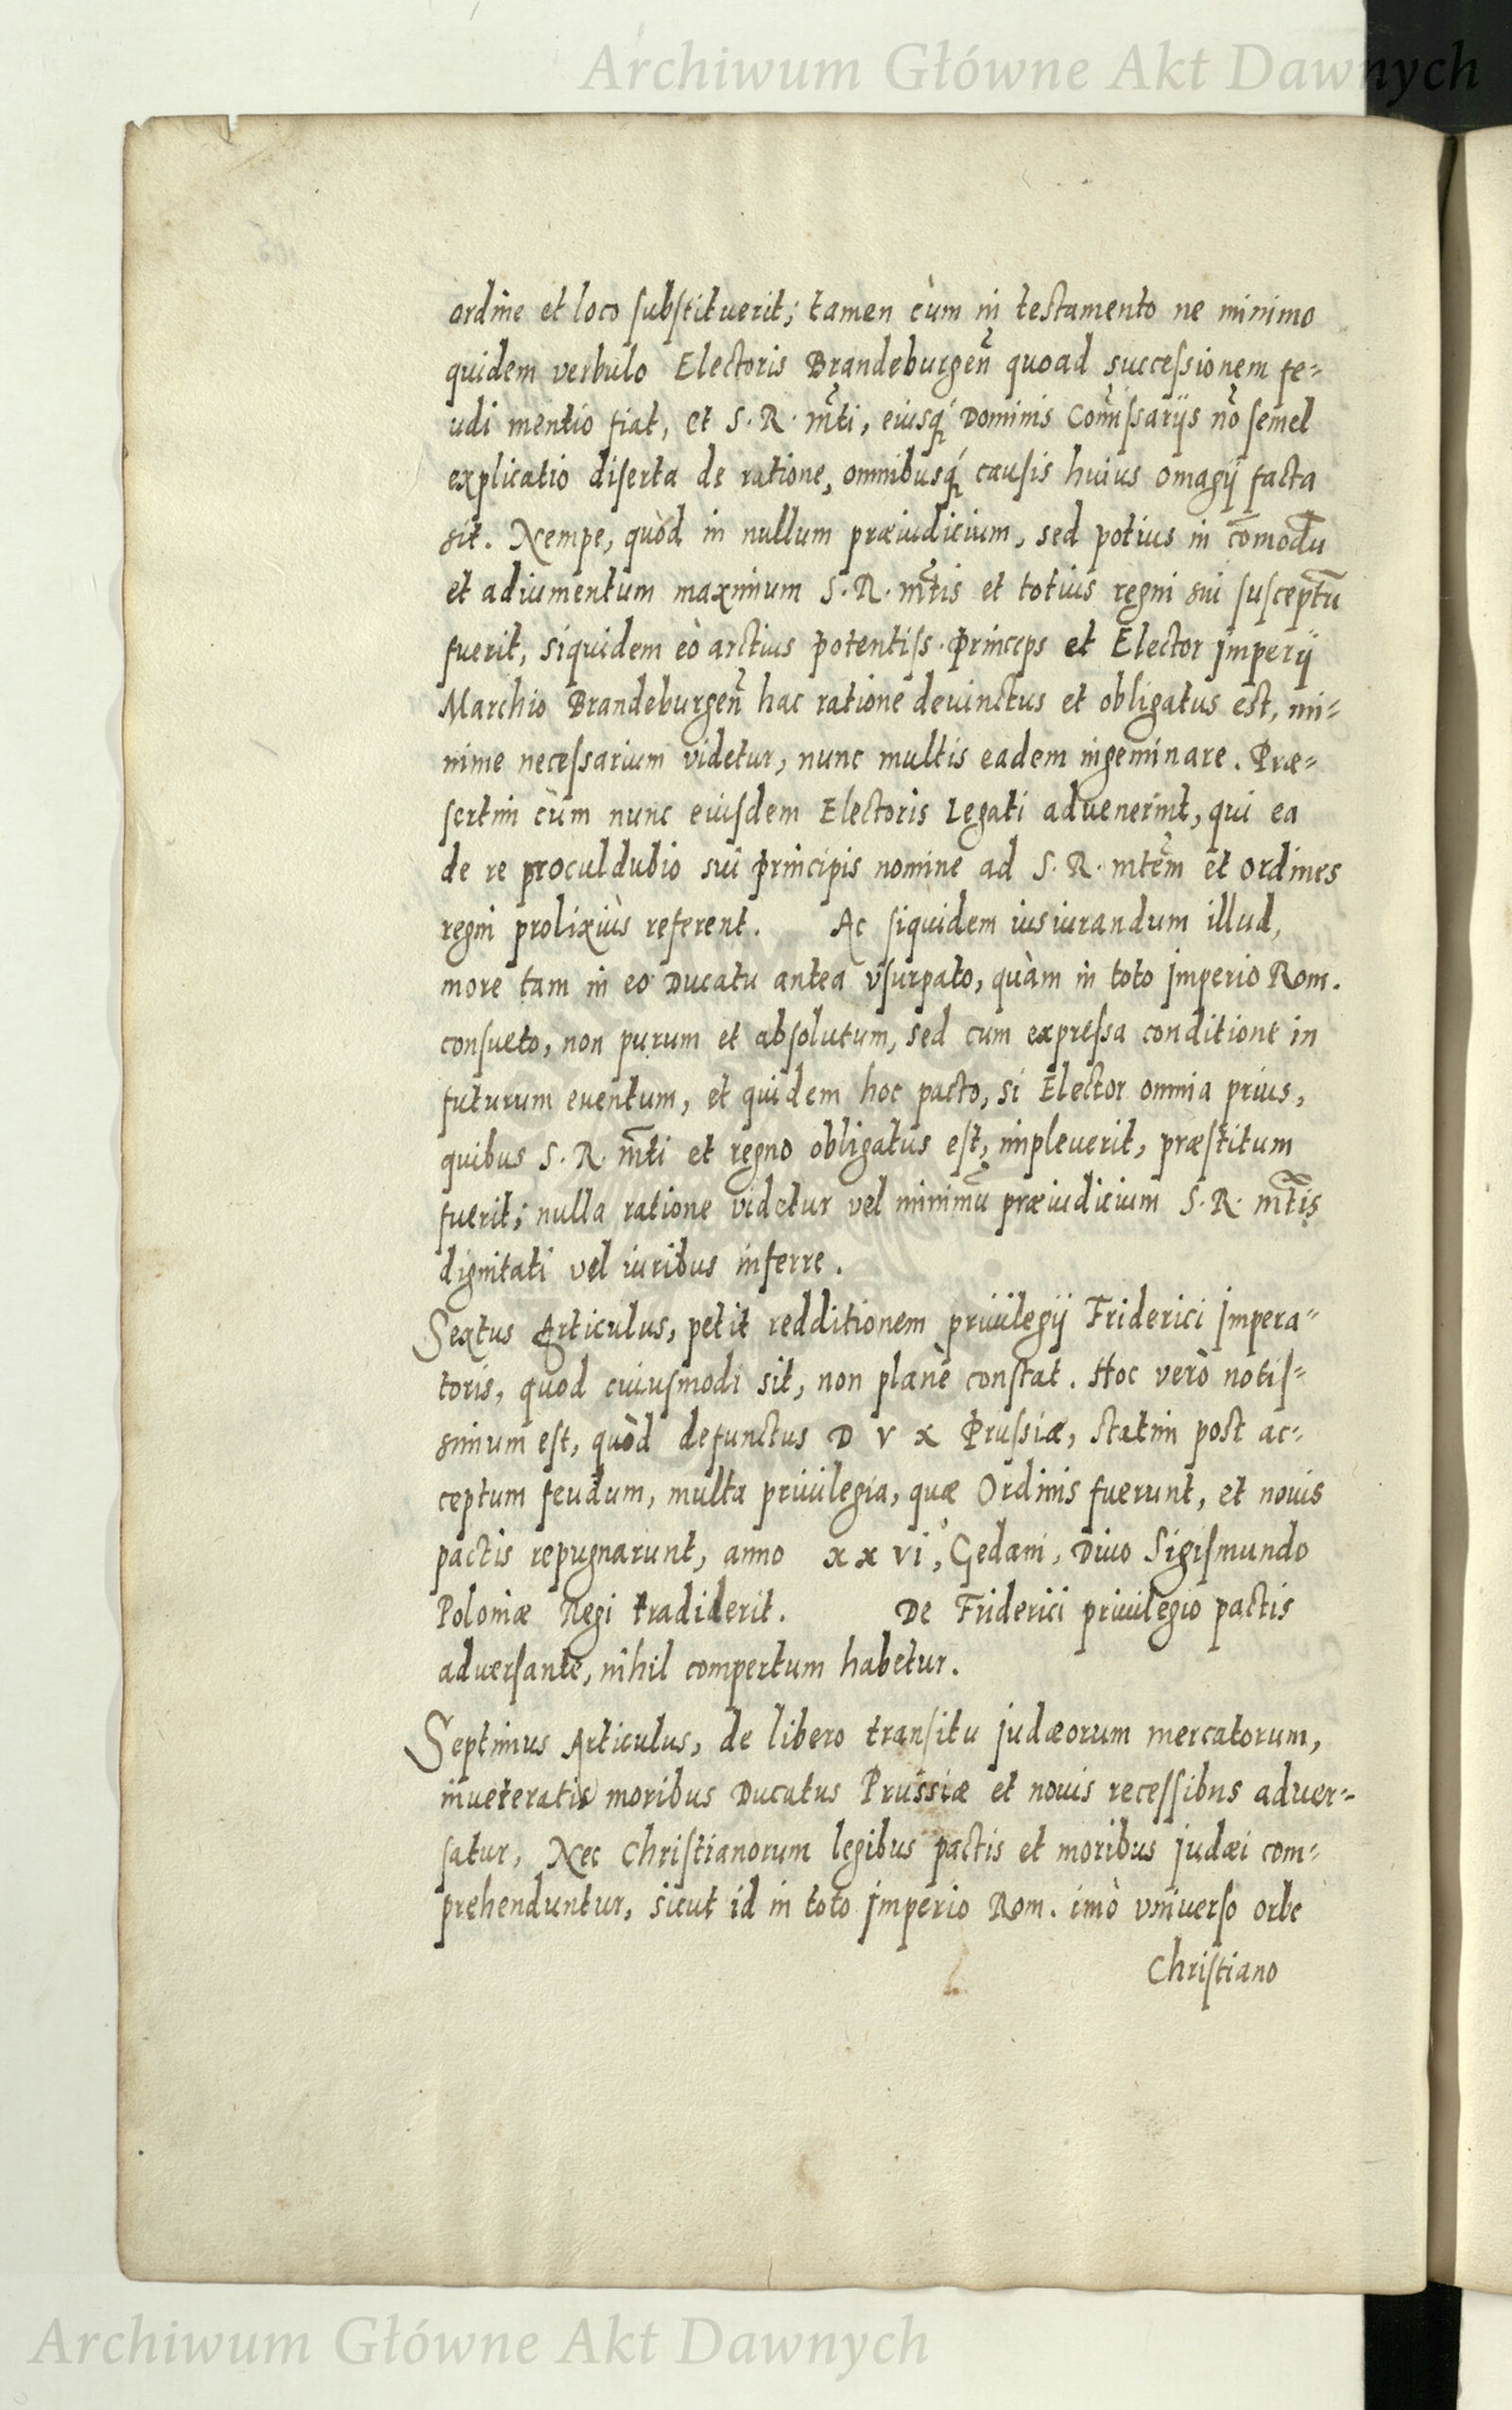 Archiwum Główne Akt Dawnych
ordine et loco substituerit; tamen cùm in testamento ne minimo
quidem verbulo Electoris Brandeburgeñ quoad successionem fe-
udi mentio fiat, et S. R. m̃ti, eiusq́ Dominis Com̃issarijs nõ semel
explicatio diserta de ratione, omnibusq́ causis huius omagij facta
sit. Nempe, quòd in nullum præiudicium, sed potius in cõmodũ
et adiumentum maximum S. R. m̃tis et totius regni sui susceptũ
fuerit, siquidem eò arctius potentiss. Princeps et Elector Imperij
Marchio Brandeburgeñ hac ratione deuinctus et obligatus est, mi-
nime necessarium videtur, nunc multis eadem ingeminare. Præ-
sertim cùm nunc eiusdem Electoris Legati aduenerint, qui ea
de re proculdubio sui Principis nomine ad S. R. mtẽm et ordines
regni prolixiùs referent. Ac siquidem iusiurandum illud,
more tam in eo Ducatu antea vsurpato, quàm in toto Imperio Rom.
consueto, non purum et absolutum, sed cum expressa conditione in
futurum euentum, et quidem hoc pacto, si Elector omnia prius,
quibus S. R. m̃ti et regno obligatus est, impleuerit, præstitum
fuerit; nulla ratione videtur vel minimũ præiudicium S. R. m̃tis
dignitati vel iuribus inferre.
Sextus Articulus, petit redditionem priuilegij Friderici Impera-
toris, quod cuiusmodi sit, non planè constat. Hoc verò notis-
simum est, quòd defunctus D V X Prussiæ, statim post ac-
ceptum feudum, multa priuilegia, quæ Ordinis fuerunt, et nouis
pactis repugnarunt, anno xxvi, Gedani, Diuo Sigismundo
Poloniæ Regi tradiderit. De Friderici priuilegio pactis
aduersante, nihil compertum habetur.
Septimus Articulus, de libero transitu Judæorum mercatorum,
inueteratis moribus Ducatus Prussiæ et nouis recessibus aduer-
satur, Nec Christianorum legibus pactis et moribus Judæi com-
prehenduntur, sicut id in toto Imperio Rom. imò vniuerso orbe
Christiano
Archiwum Główne Akt Dawnych